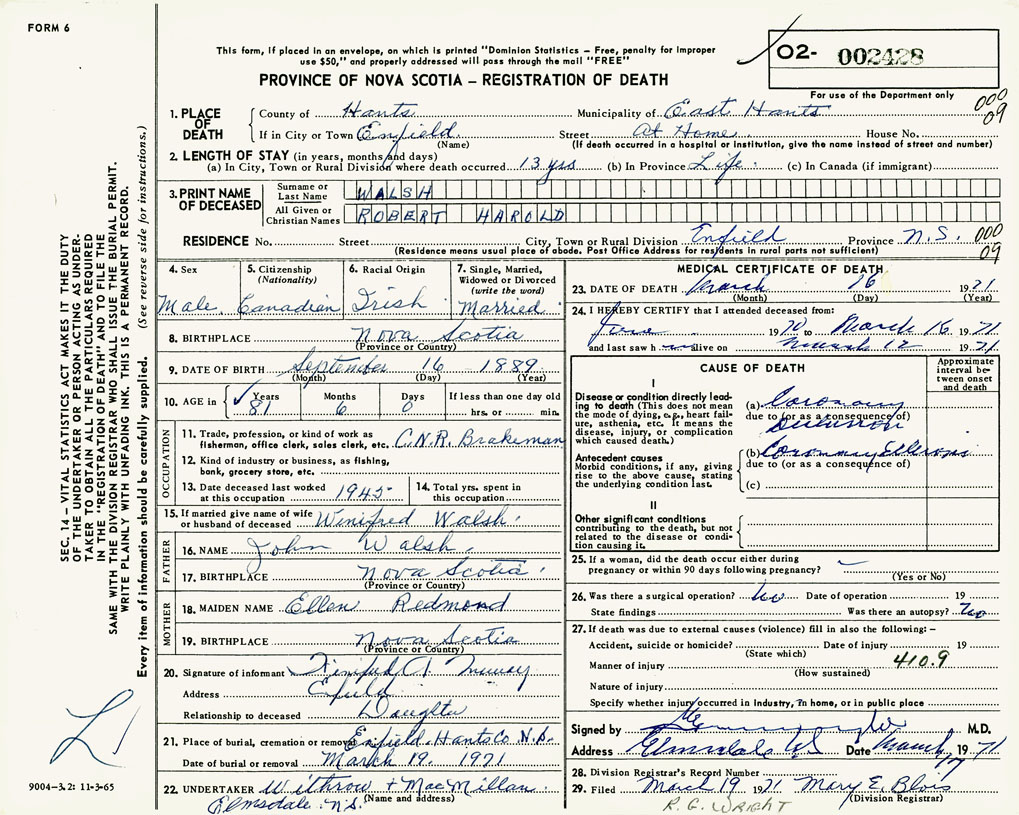 FORM 6
This form, if placed in an envelope, on which is printed "Dominion Statistics – Free, penalty for improper
use $50," and properly addressed will pass through the mail "FREE"
PROVINCE OF NOVA SCOTIA – REGISTRATION OF DEATH
02- 002428
For use of the Department only
000
09
SEC. 14 – VITAL STATISTICS ACT MAKES IT THE DUTY
OF THE UNDERTAKER OR PERSON ACTING AS UNDER-
TAKER TO OBTAIN ALL THE PARTICULARS REQUIRED
IN THE "REGISTRATION OF DEATH" AND TO FILE THE
SAME WITH THE DIVISION REGISTRAR WHO SHALL ISSUE THE BURIAL PERMIT.
WRITE PLAINLY WITH UNFADING INK. THIS IS A PERMANENT RECORD.
Every item of information should be carefully supplied. (See reverse side for instructions.)
1. PLACE OF DEATH County of Hants Municipality of East Hants
If in City or Town Enfield Street At Home House No.
(Name) (If death occurred in a hospital or institution, give the name instead of street and number)
2. LENGTH OF STAY (in years, months and days)
(a) In City, Town or Rural Division where death occurred 13 yrs (b) In Province Life (c) In Canada (if immigrant)
3. PRINT NAME OF DECEASED Surname or Last Name WALSH
All Given or Christian Names ROBERT HAROLD
RESIDENCE No. Street City, Town or Rural Division Enfield Province N.S. 000 09
(Residence means usual place of abode. Post Office Address for residents in rural parts not sufficient)
4. Sex Male
5. Citizenship (Nationality) Canadian
6. Racial Origin Irish
7. Single, Married, Widowed or Divorced (write the word) Married
8. BIRTHPLACE Nova Scotia
(Province or Country)
9. DATE OF BIRTH September 16 1889
(Month) (Day) (Year)
10. AGE in Years 81 Months 6 Days 0 If less than one day old hrs. or min.
OCCUPATION
11. Trade, profession, or kind of work as fisherman, office clerk, sales clerk, etc. C.N.R. Brakeman
12. Kind of industry or business, as fishing, bank, grocery store, etc.
13. Date deceased last worked at this occupation 1945
14. Total yrs. spent in this occupation
15. If married give name of wife or husband of deceased Winifred Walsh
FATHER
16. NAME John Walsh
17. BIRTHPLACE Nova Scotia
(Province or Country)
MOTHER
18. MAIDEN NAME Ellen Redmond
19. BIRTHPLACE Nova Scotia
(Province or Country)
20. Signature of informant
Address
Relationship to deceased Daughter
21. Place of burial, cremation or removal Enfield, Hants Co N.S.
Date of burial or removal March 19. 1971
22. UNDERTAKER Withrow + MacMillan
Elmsdale N.S. (Name and address)
9004-3.2: 11-3-65
MEDICAL CERTIFICATE OF DEATH
23. DATE OF DEATH March 16 1971
(Month) (Day) (Year)
24. I HEREBY CERTIFY that I attended deceased from:
June 1970 to March 16 1971
and last saw h alive on March 12 1971
CAUSE OF DEATH
Approximate interval between onset and death
I
Disease or condition directly leading to death (This does not mean the mode of dying, e.g., heart failure, asthenia, etc. It means the disease, injury, or complication which caused death.)
(a) Coronary
due to (or as a consequence of)
Antecedent causes
Morbid conditions, if any, giving rise to the above cause, stating the underlying condition last.
(b) Coronary
due to (or as a consequence of)
(c)
II
Other significant conditions contributing to the death, but not related to the disease or condition causing it.
25. If a woman, did the death occur either during
pregnancy or within 90 days following pregnancy?
(Yes or No)
26. Was there a surgical operation? No Date of operation 19
State findings Was there an autopsy? No
27. If death was due to external causes (violence) fill in also the following: –
Accident, suicide or homicide? Date of injury 19
(State which)
410.9
Manner of injury
(How sustained)
Nature of injury
Specify whether injury occurred in industry, in home, or in public place
Signed by M.D.
Address Elmsdale NS Date March 17 1971
28. Division Registrar's Record Number
29. Filed March 19 1971 Mary E. Blois
(Division Registrar)
R. G. WRIGHT